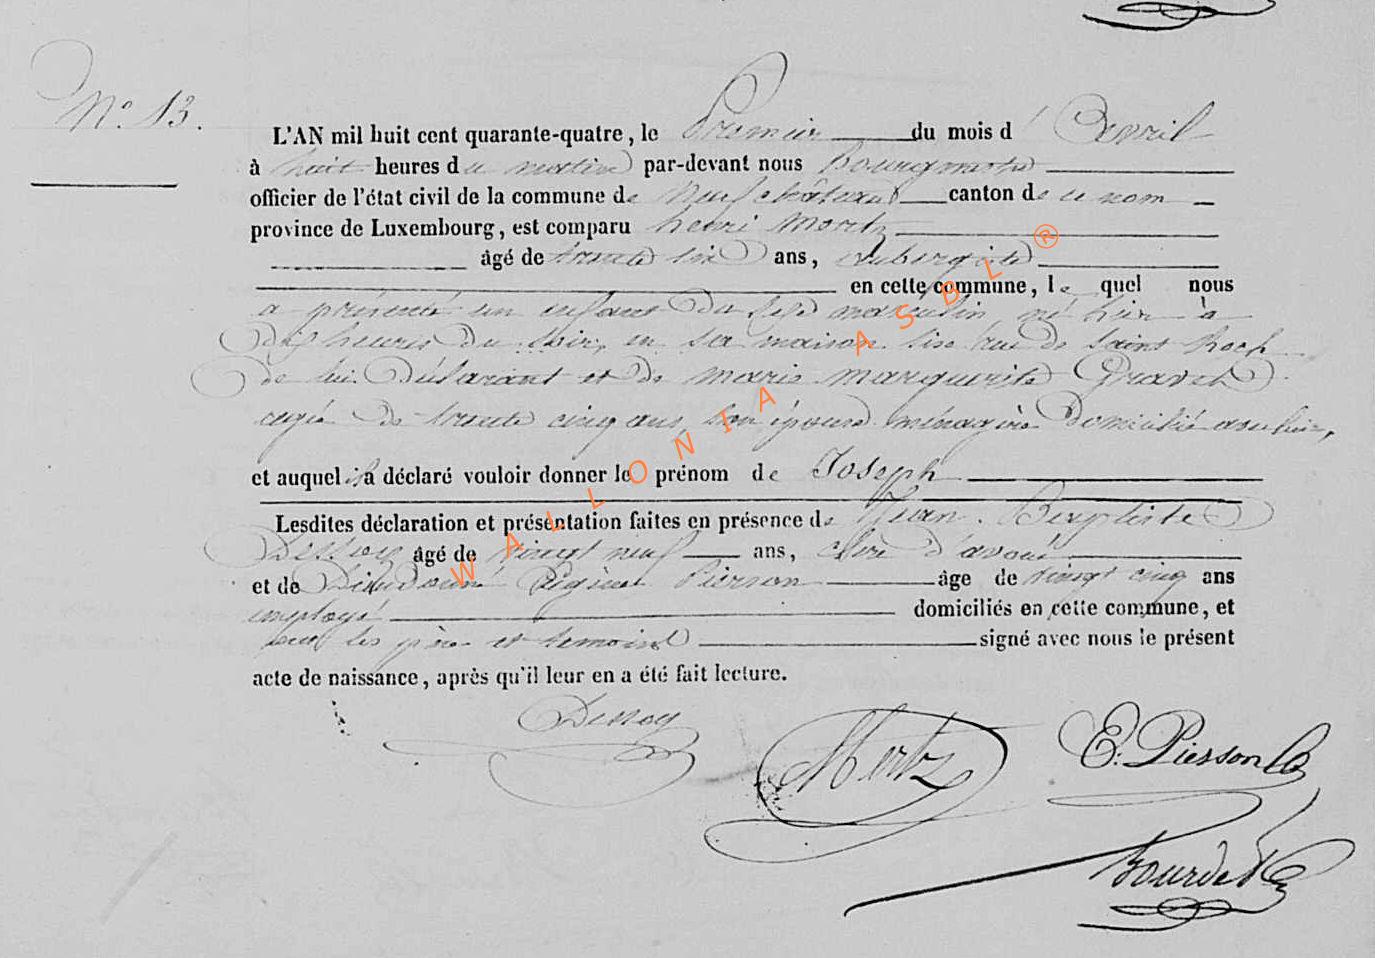 N° 13.
L'AN mil huit cent quarante-quatre, le Premier du mois d' Avril
à huit heures du matin par-devant nous Bourgmestre
officier de l'état civil de la commune de Neufchâteau canton de ce nom
province de Luxembourg, est comparu henri Mertz
âgé de trente six ans, Aubergiste
en cette commune, le quel nous
a présenté un enfant du sexe masculin, né hier à
dix heures du soir, en sa maison sise rue de saint Roch
de lui déclarant et de marie marguerite
agée de trente cinq ans, son épouse ménagère domicilié avec lui,
et auquel il a déclaré vouloir donner le prénom de Joseph
Lesdites déclaration et présentation faites en présence de Jean Baptiste
Dessoy âgé de vingt neuf ans, clerc d'avoué
et de Dieudonné Eugène Pierson âge de vingt cinq ans
employé domiciliés en cette commune, et
ont les père et temoins signé avec nous le présent
acte de naissance, après qu'il leur en a été fait lecture.
Dessoy
Mertz
E. Pierson
Bourdet
WALLONIA ASBL ®